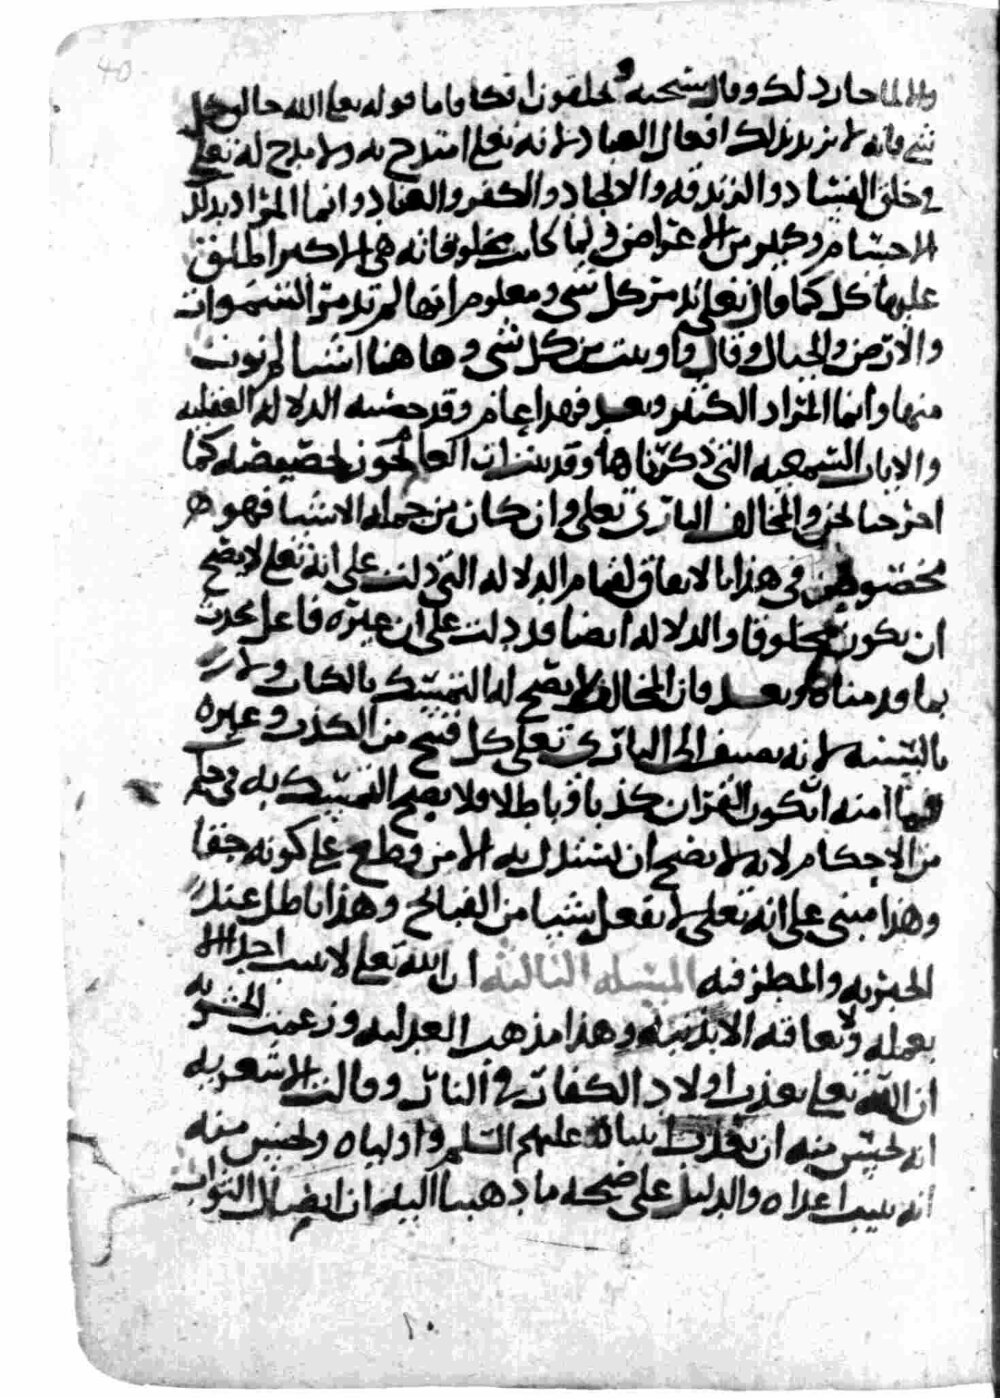 40
والا لما جاز ذلك وقال سبحنه وتخلقون افكا فاما قوله تعلى الله خالق كل
شي فانه لا يريد بذلك افعال العباد لانه تعلى امتدح به ولا مدح له تعلى
في خلق الفساد والزندقه والالحاد والكفر والعناد وانما المراد بذلك
الاجسام وكثير من الاعراض ولما كانت مخلوقاته هي الاكثر اطلق
عليها كل كما قال تعلى تدمر كل شي ومعلوم انها لم تدمر السموات
والارض والجبال وقال واوتيت من كل شي وها هنا اشيا لم توت
منها وانما المراد الكثير وبعد فهذا عام وقد خصته الدلاله العقليه
والايات السمعيه التي ذكرناها وقد بينت ان العام يجوز تخصيصه كما
اخرجنا نحن والمخالف الباري تعلى وان كان من جمله الاشيا فهو
مخصوص في هذا بالاتفاق لقيام الدلاله التي دلت على انه تعلى لا يصح
ان يكون مخلوقا والدلاله ايضا قد دلت على ان غيره فاعل محدث
بما قدمناه وبعد فان المخالف لا يصح له التمسك بالكتاب ولا
بالسنه لانه يضيف الى الباري تعلى كل قبيح من الكذب وغيره
فما امنه ان يكون القران كذبا وباطلا ولا يصح التمسك به في حكم
من الاحكام لانه لا يصح ان يستدل به الا من قطع على كونه حقا
وهذا مبني على انه تعلى لا يفعل شيا من القبائح وهذا باطل عند
الجبريه والمطرفيه المسئله الثالثه ان الله تعلى لا يثيب احدا الا
بعمله ولا يعاقبه الا بذنبه وهذا مذهب العدليه وزعمت الحشويه
ان الله تعلى يعذب اولاد الكفار في النار وقالت الاشعريه
انه يحسن منه ان يعذب انبياه عليهم السلم واولياه ويحسن منه
انه يثيب اعداه والدليل على صحه ما ذهبنا اليه ان ايصال الثواب